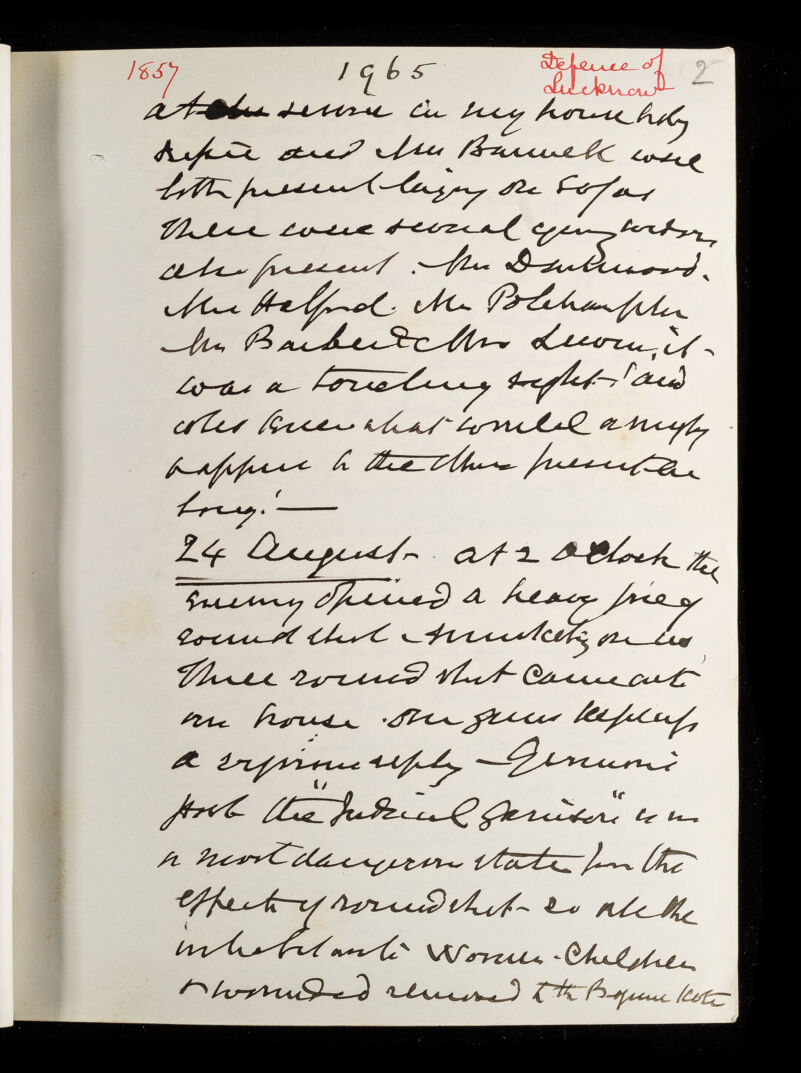 1857 1965 Defence of 2
Lucknow
at service in my house Lady
and Mrs Barwell were
both present laying on Sofas
There were several young widows
also present. Mrs Dashwood.
Mrs Halford. Mrs Polehampton
Mrs Barber & Mrs Lewin, it
was a touching sight! and
who knew what would or might
happen to the others present ere
long! —
24 August - at 2 o'Clock the
enemy opened a heavy fire of
round shot & musketry on us
Three round shot came into
our house. Our guns kept up
a vigorous reply — Germons
post the "Judicial Garrison" is in
a most dangerous state from the
effects of round shot - so all the
inhabitants Women - Children
& wounded removed to the Begum Kotee